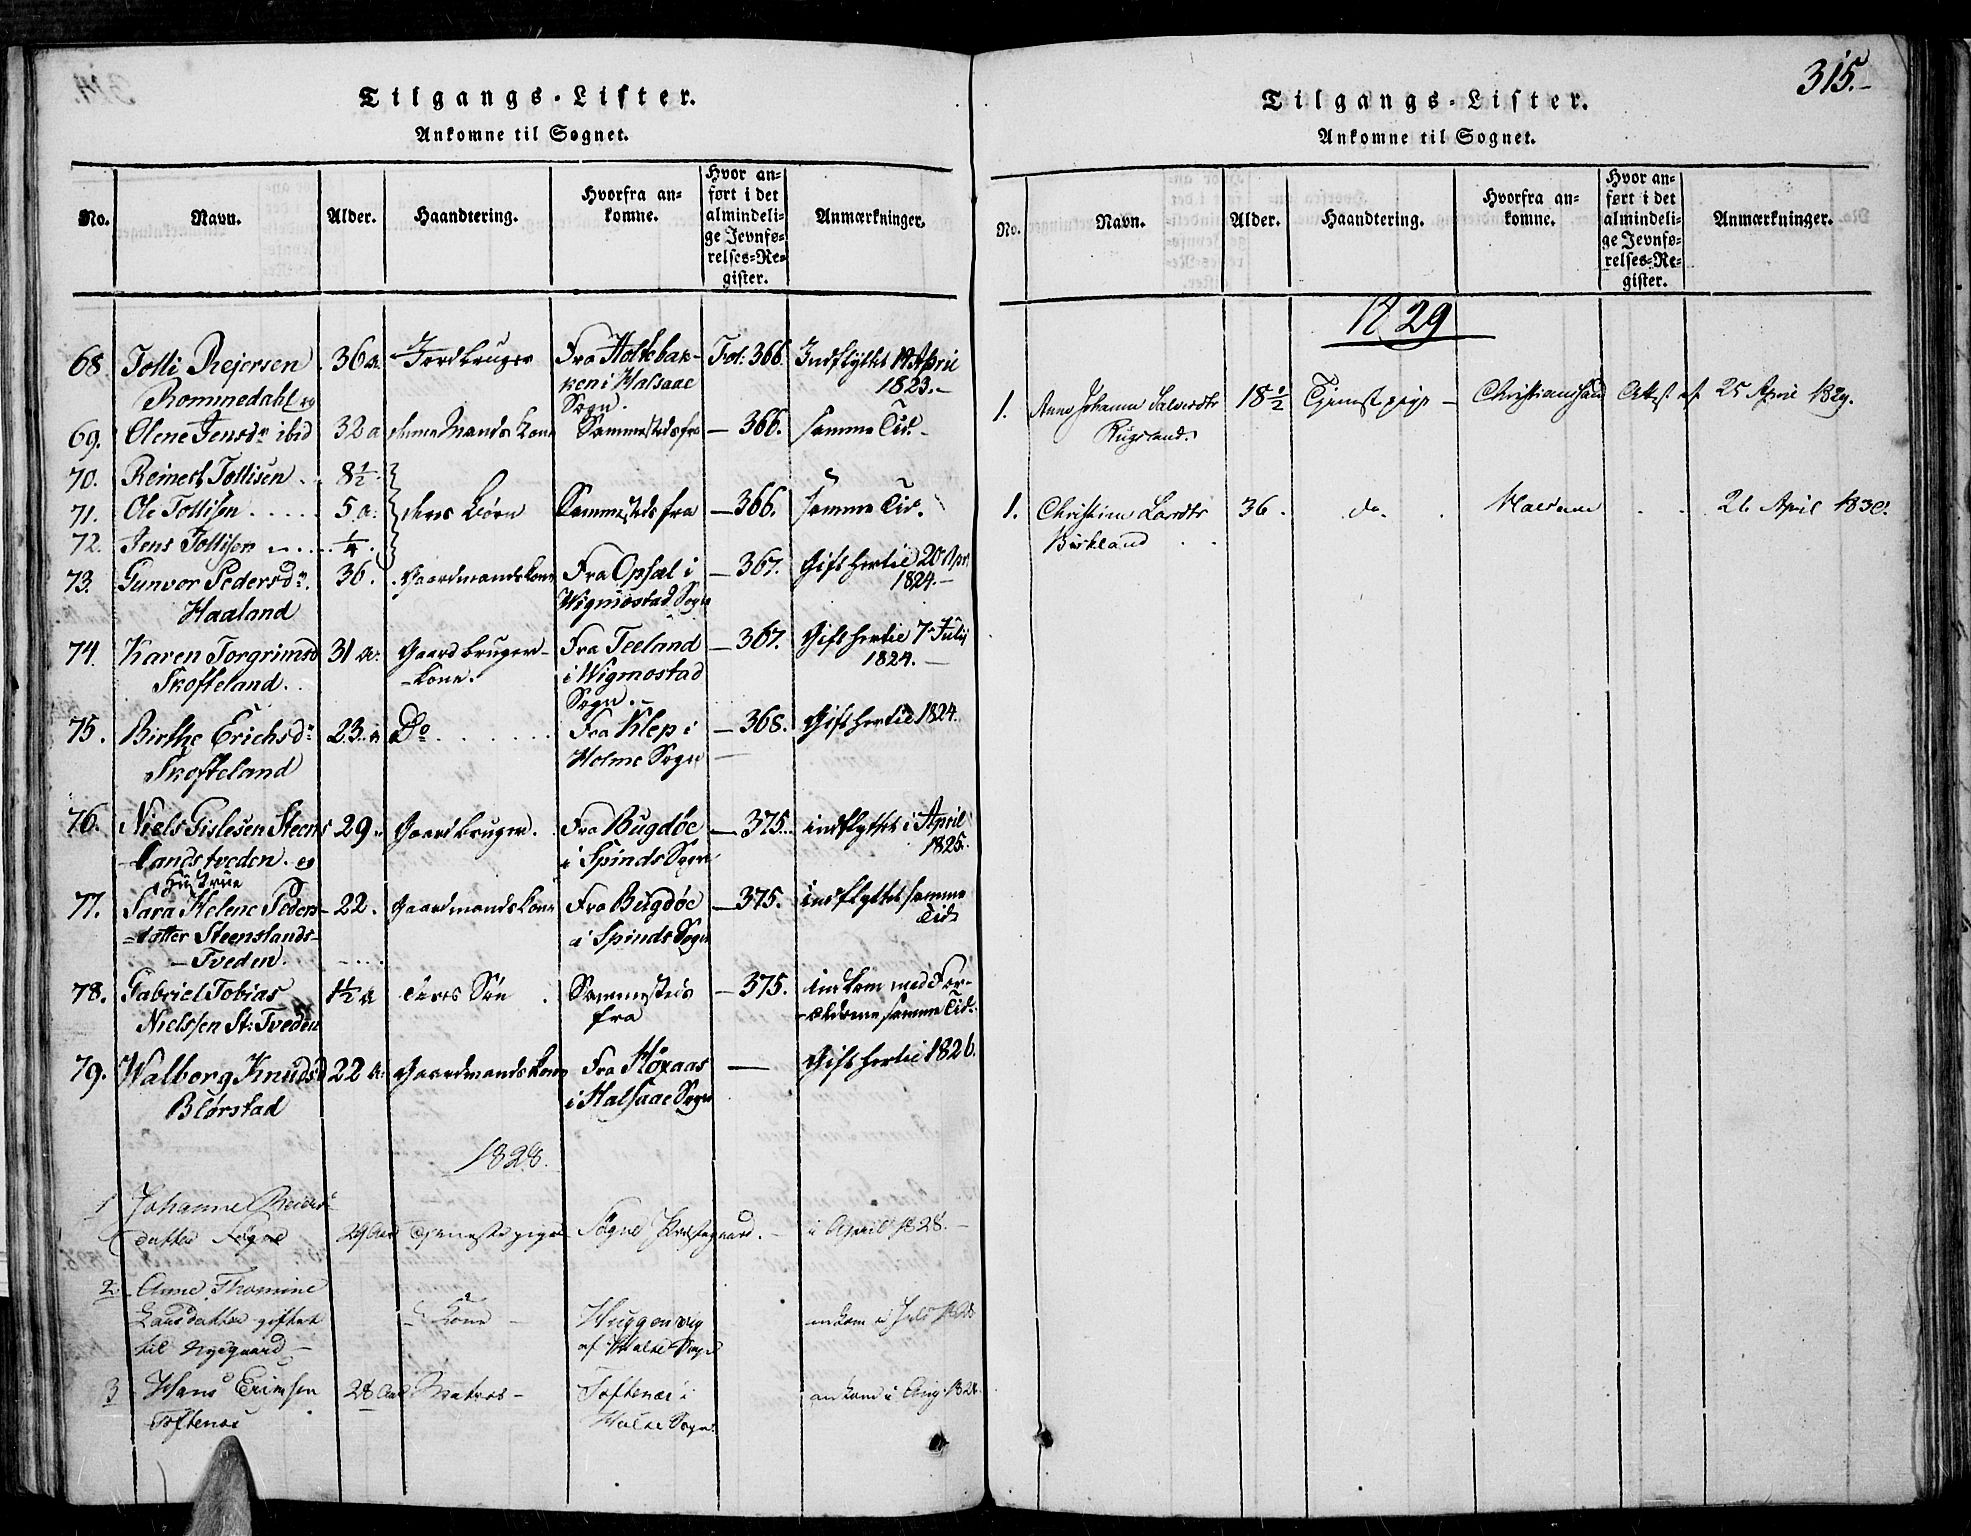 Tilgangs-Lister.
Ankomne til Sognet.
No. Navn. Alder. Haandtering. Hvorfra ankomne. Hvor anført i det almindelige Jevnførelses-Register. Anmærkninger.
68 Tolli Rejersen 36 a. Jordbruger Fra Holkebak- Fol: 366. Indflyttet 19 April
Rommedahl og ken i Halsaae 1823.-
Sogn.
69. Olene Jensdr ibid 32 a Mands Kone Sammestedsfra - 366. samme Tid.-
70. Reinert Tollisen. 8½
71. Ole Tollisen 5 a. deres Børn Sammestedsfra - 366. samme Tid.
72. Jens Tollisen ¼.
73. Gunvor Pedersdr. 36. Gaardmandskone Fra Opsal i - 367. Gift hertil 20 Apr.
Haaland Wigmostad Sogn 1824.-
74. Karen Torgrimsd 31 a. Gaardbruger- Fra Teeland - 367. Gift hertil 7 Julij
Skofteland. -kone. i Wigmostad 1824.-
Sogn.-
75. Birthe Erichsdr 23 a Do Fra Klep i - 368. Gift hertil 1824.
Skofteland Holme Sogn
76. Niels Gislesen Steens 29. Gaardbruger. Fra Bugdøe - 375. indflyttet i April
-landstveden. og i Spinds Sogn 1825.
Hustrue
77. Sara Helene Peders- 22. Gaardmandskone Fra Bugdøe - 375. indflyttet samme
=datter Steenslands- i Spinds Sogn Tid
-Tveden.
78. Gabriel Tobias 1½ a deres Søn Sammesteds - 375. indkom med For-
Nielssen St: Tveden fra -ældrene samme Tid.
79. Walborg Knudsd 22 a. Gaardmandskone Fra Høxaas - Gift hertil 1826.
Blørstad i Halsaae Sogn
1828.
1 Johanne Reiers-
datter Søgne 29 Aar Tjenestepige Søgne Prestegaard. - i April 1828.-
2 Anne Thomine
Larsdatter giftet Kone Huggenvig ankom i Juli 1828
til Nygaard - af Halse Sogn
3 Hans Erimsen 28 Aar Matros- Toftenæs i ankom i Aug. 1828.
Toftenæs Halse Sogn
315.-
Tilgangs-Lister.
Ankomne til Sognet.
No. Navn. Alder. Haandtering. Hvorfra ankomne. Hvor anført i det almindelige Jevnførelses-Register. Anmærkninger.
1829
1. Anne Johanne Salvesdtr 18½ Tjenestpige - Christiansand Attest af 25 April 1829.
Rugsland.
1. Christine Larsdtr 36. do. 26 April 1830.
Birkland